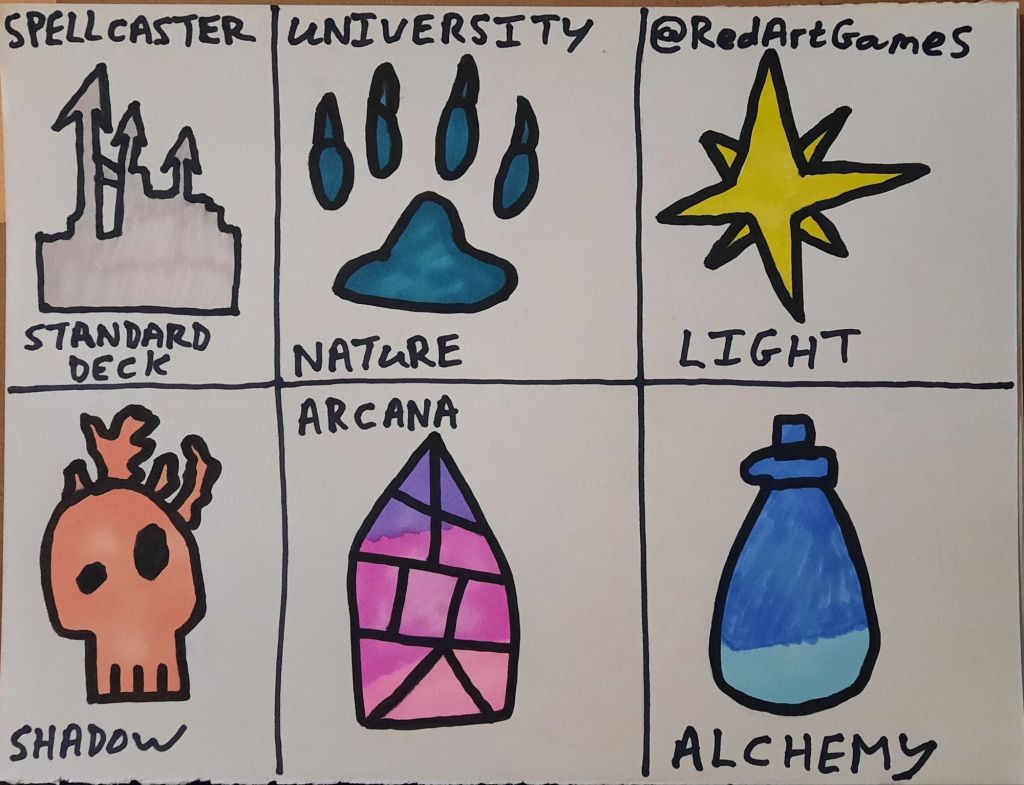 SPELLCASTER UNIVERSITY @RedArtGames
STANDARD
DECK
NATURE
LIGHT
SHADOW
ARCANA
ALCHEMY